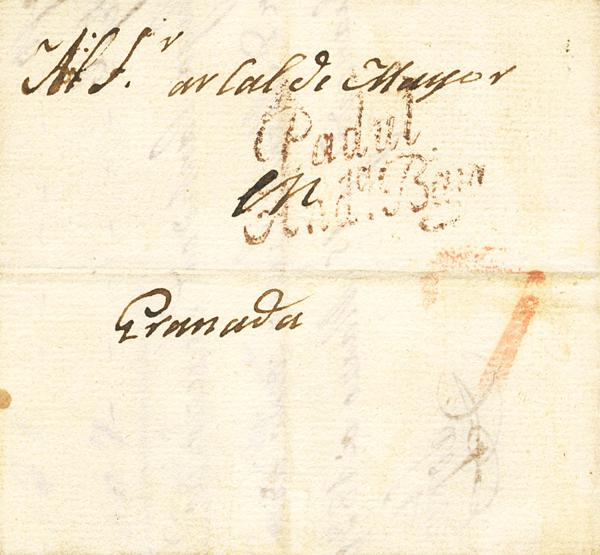 Al S.r arcaldi Mayor
Padul
en
And.da Baja
Granada
7